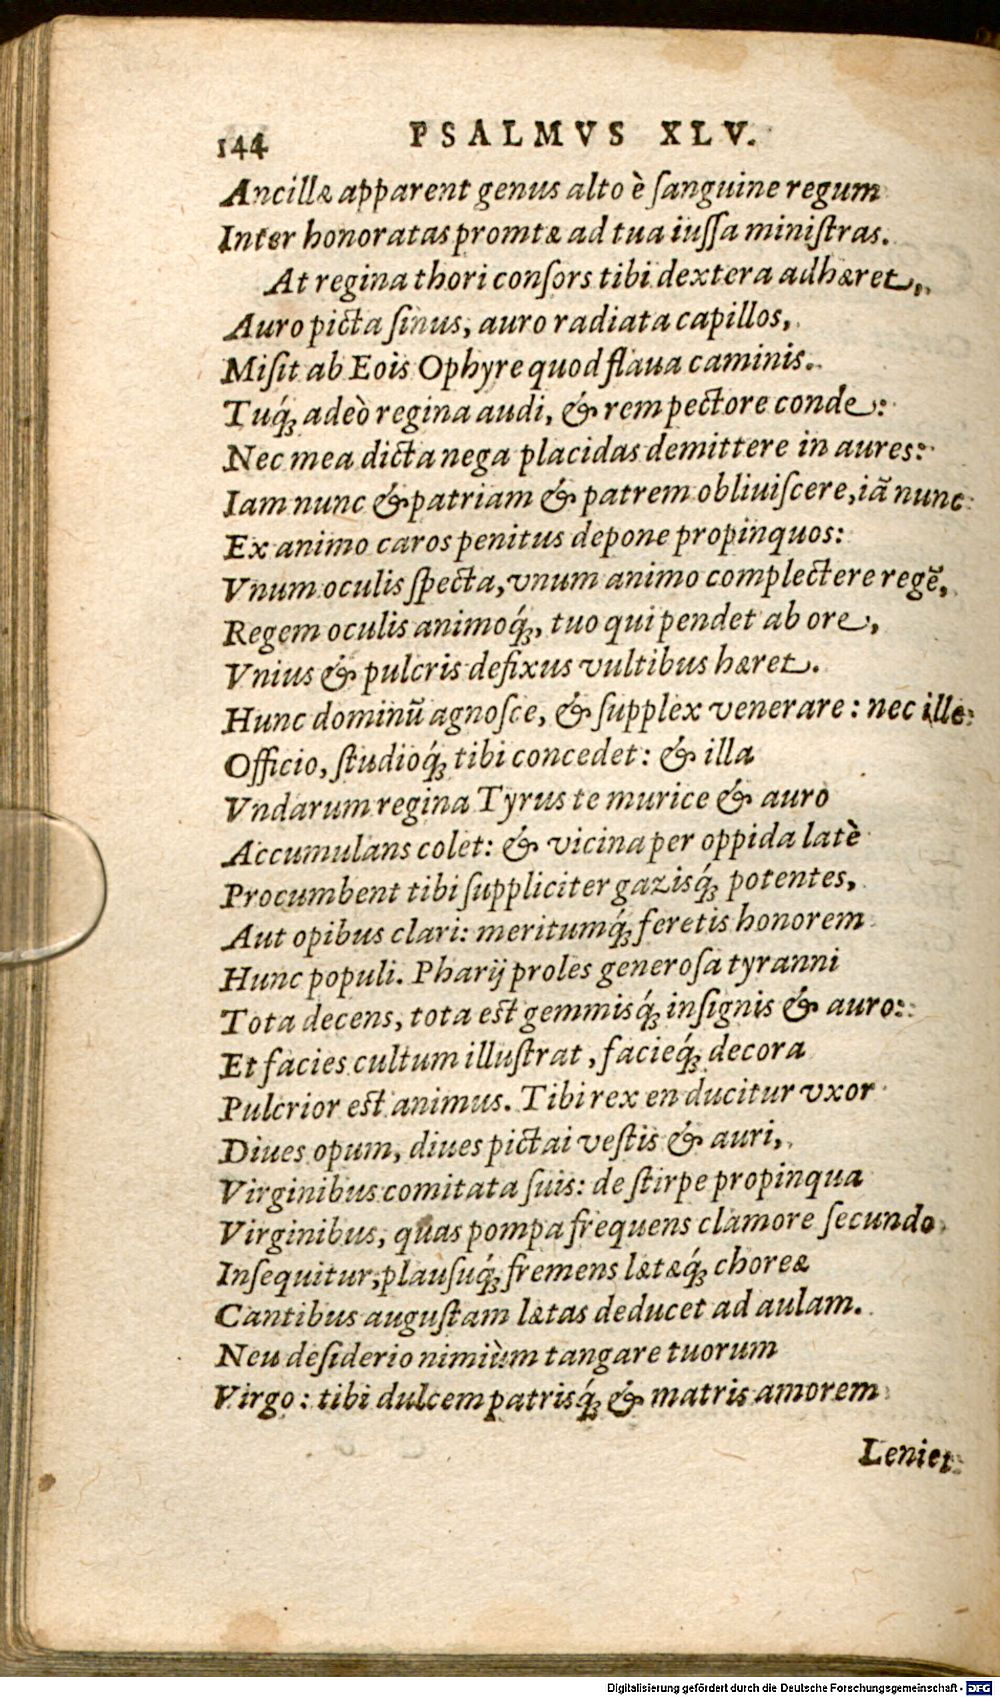 144 PSALMVS XLV.
Ancillæ apparent genus alto è ſanguine regum
Inter honoratas promtæ ad tua iuſſa miniſtras.
At regina thori conſors tibi dextera adhæret,
Auro picta ſinus, auro radiata capillos,
Miſit ab Eois Ophyre quod flaua caminis.
Tuq́ꝫ adeò regina audi, & rem pectore conde:
Nec mea dicta nega placidas demittere in aures:
Iam nunc & patriam & patrem obliuiſcere, iā nunc
Ex animo caros penitus depone propinquos:
Vnum oculis ſpecta, vnum animo complectere regē,
Regem oculis animoq́ꝫ, tuo qui pendet ab ore,
Vnius & pulcris defixus vultibus hæret.
Hunc dominū agnoſce, & ſupplex venerare: nec ille
Officio, ſtudioq́ꝫ tibi concedet: & illa
Vndarum regina Tyrus te murice & auro
Accumulans colet: & vicina per oppida latè
Procumbent tibi ſuppliciter gazisq́ꝫ potentes,
Aut opibus clari: meritumq́ꝫ feretis honorem
Hunc populi. Pharij proles generoſa tyranni
Tota decens, tota eſt gemmisq́ꝫ inſignis & auro:
Et facies cultum illuſtrat, facieq́ꝫ decora
Pulcrior eſt animus. Tibi rex en ducitur vxor
Diues opum, diues pictai veſtis & auri,
Virginibus comitata ſuis: de ſtirpe propinqua
Virginibus, quas pompa frequens clamore ſecundo
Inſequitur, plauſuq́ꝫ fremens lætæq́ꝫ choreæ
Cantibus auguſtam lætas deducet ad aulam.
Neu deſiderio nimiùm tangare tuorum
Virgo: tibi dulcem patrisq́ꝫ & matris amorem
Leniet
Digitalisierung gefördert durch die Deutsche Forschungsgemeinschaft - DFG